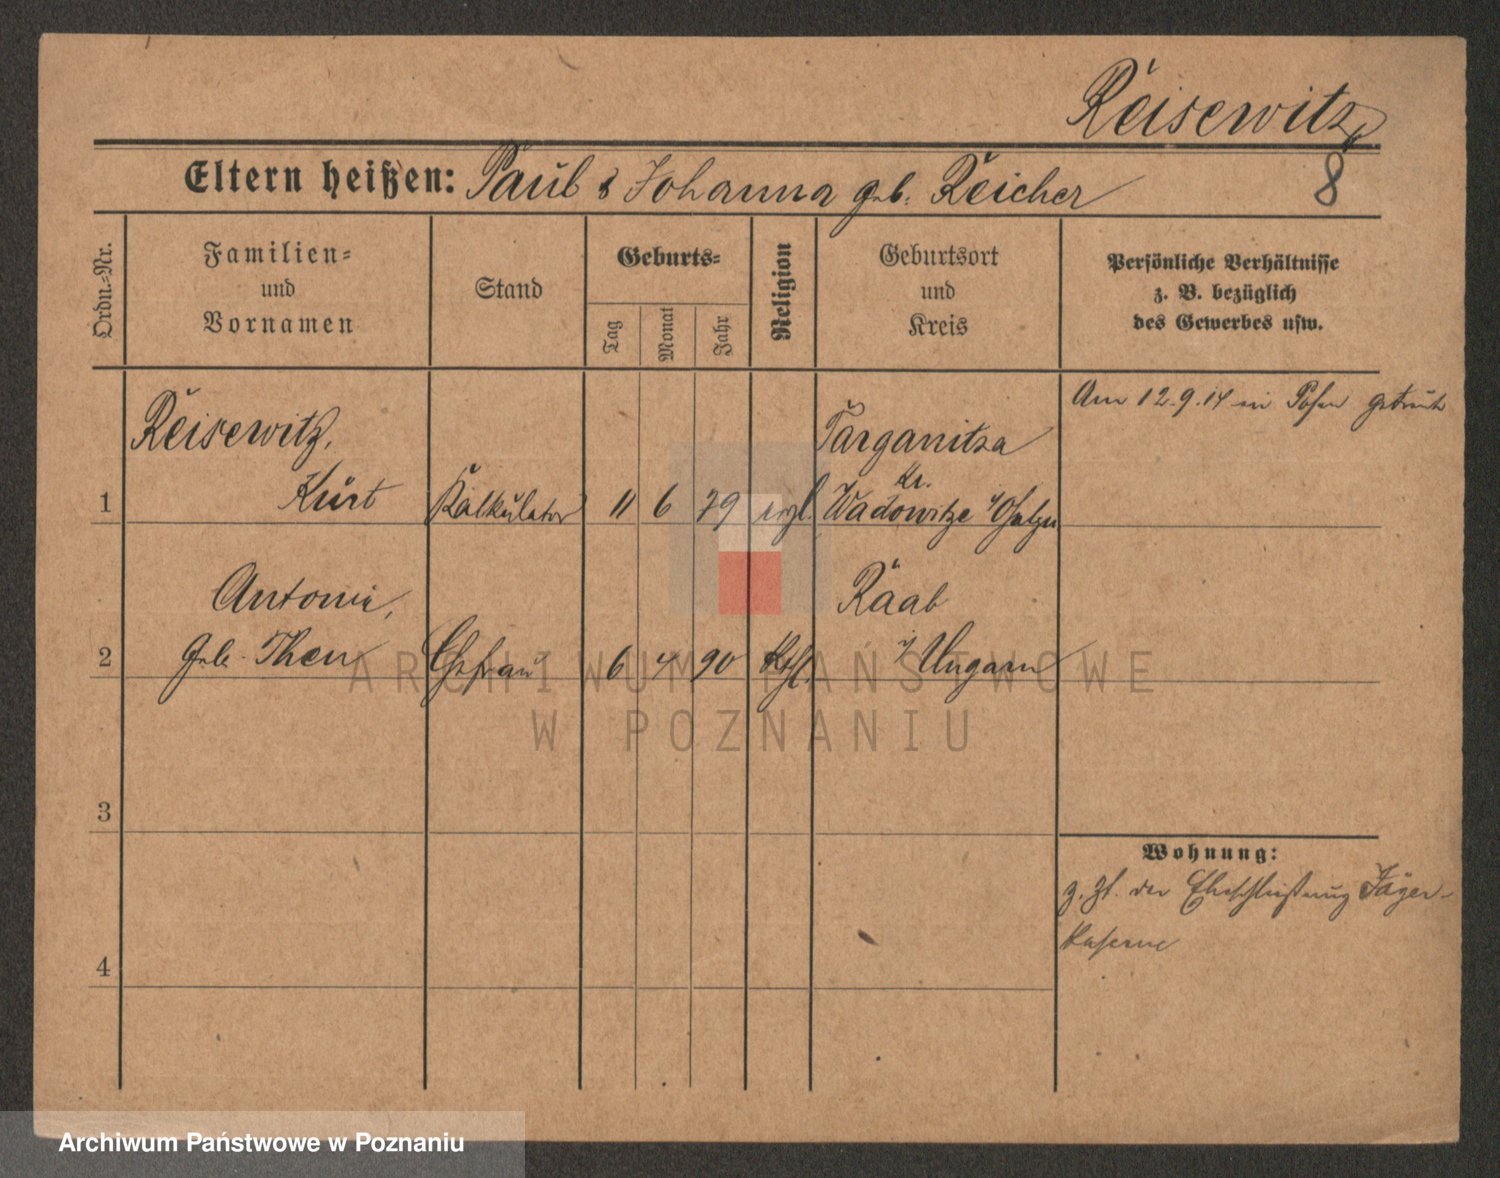 Reisewitz
8
Eltern heißen: Paul & Johanna geb. Reicher
Ordn.-Nr.
Familien-
und
Vornamen
Stand
Geburts-
Tag
Monat
Jahr
Religion
Geburtsort
und
Kreis
Persönliche Verhältnisse
z. B. bezüglich
des Gewerbes usw.
Am 12.9.14 in Posen getraut
Reisewitz,
Targanitza
Kr.
1 Kurt Kalkulator 11 6 79 evgl. Wadowitze
Antonie, Raab
2 geb. Then Ehefrau 6 4 90 Kthl. i/Ungarn
3
4
Wohnung:
z. Zt. der Eheschließung Jäger-
kaserne
ARCHIWUM PAŃSTWOWE
W POZNANIU
Archiwum Państwowe w Poznaniu